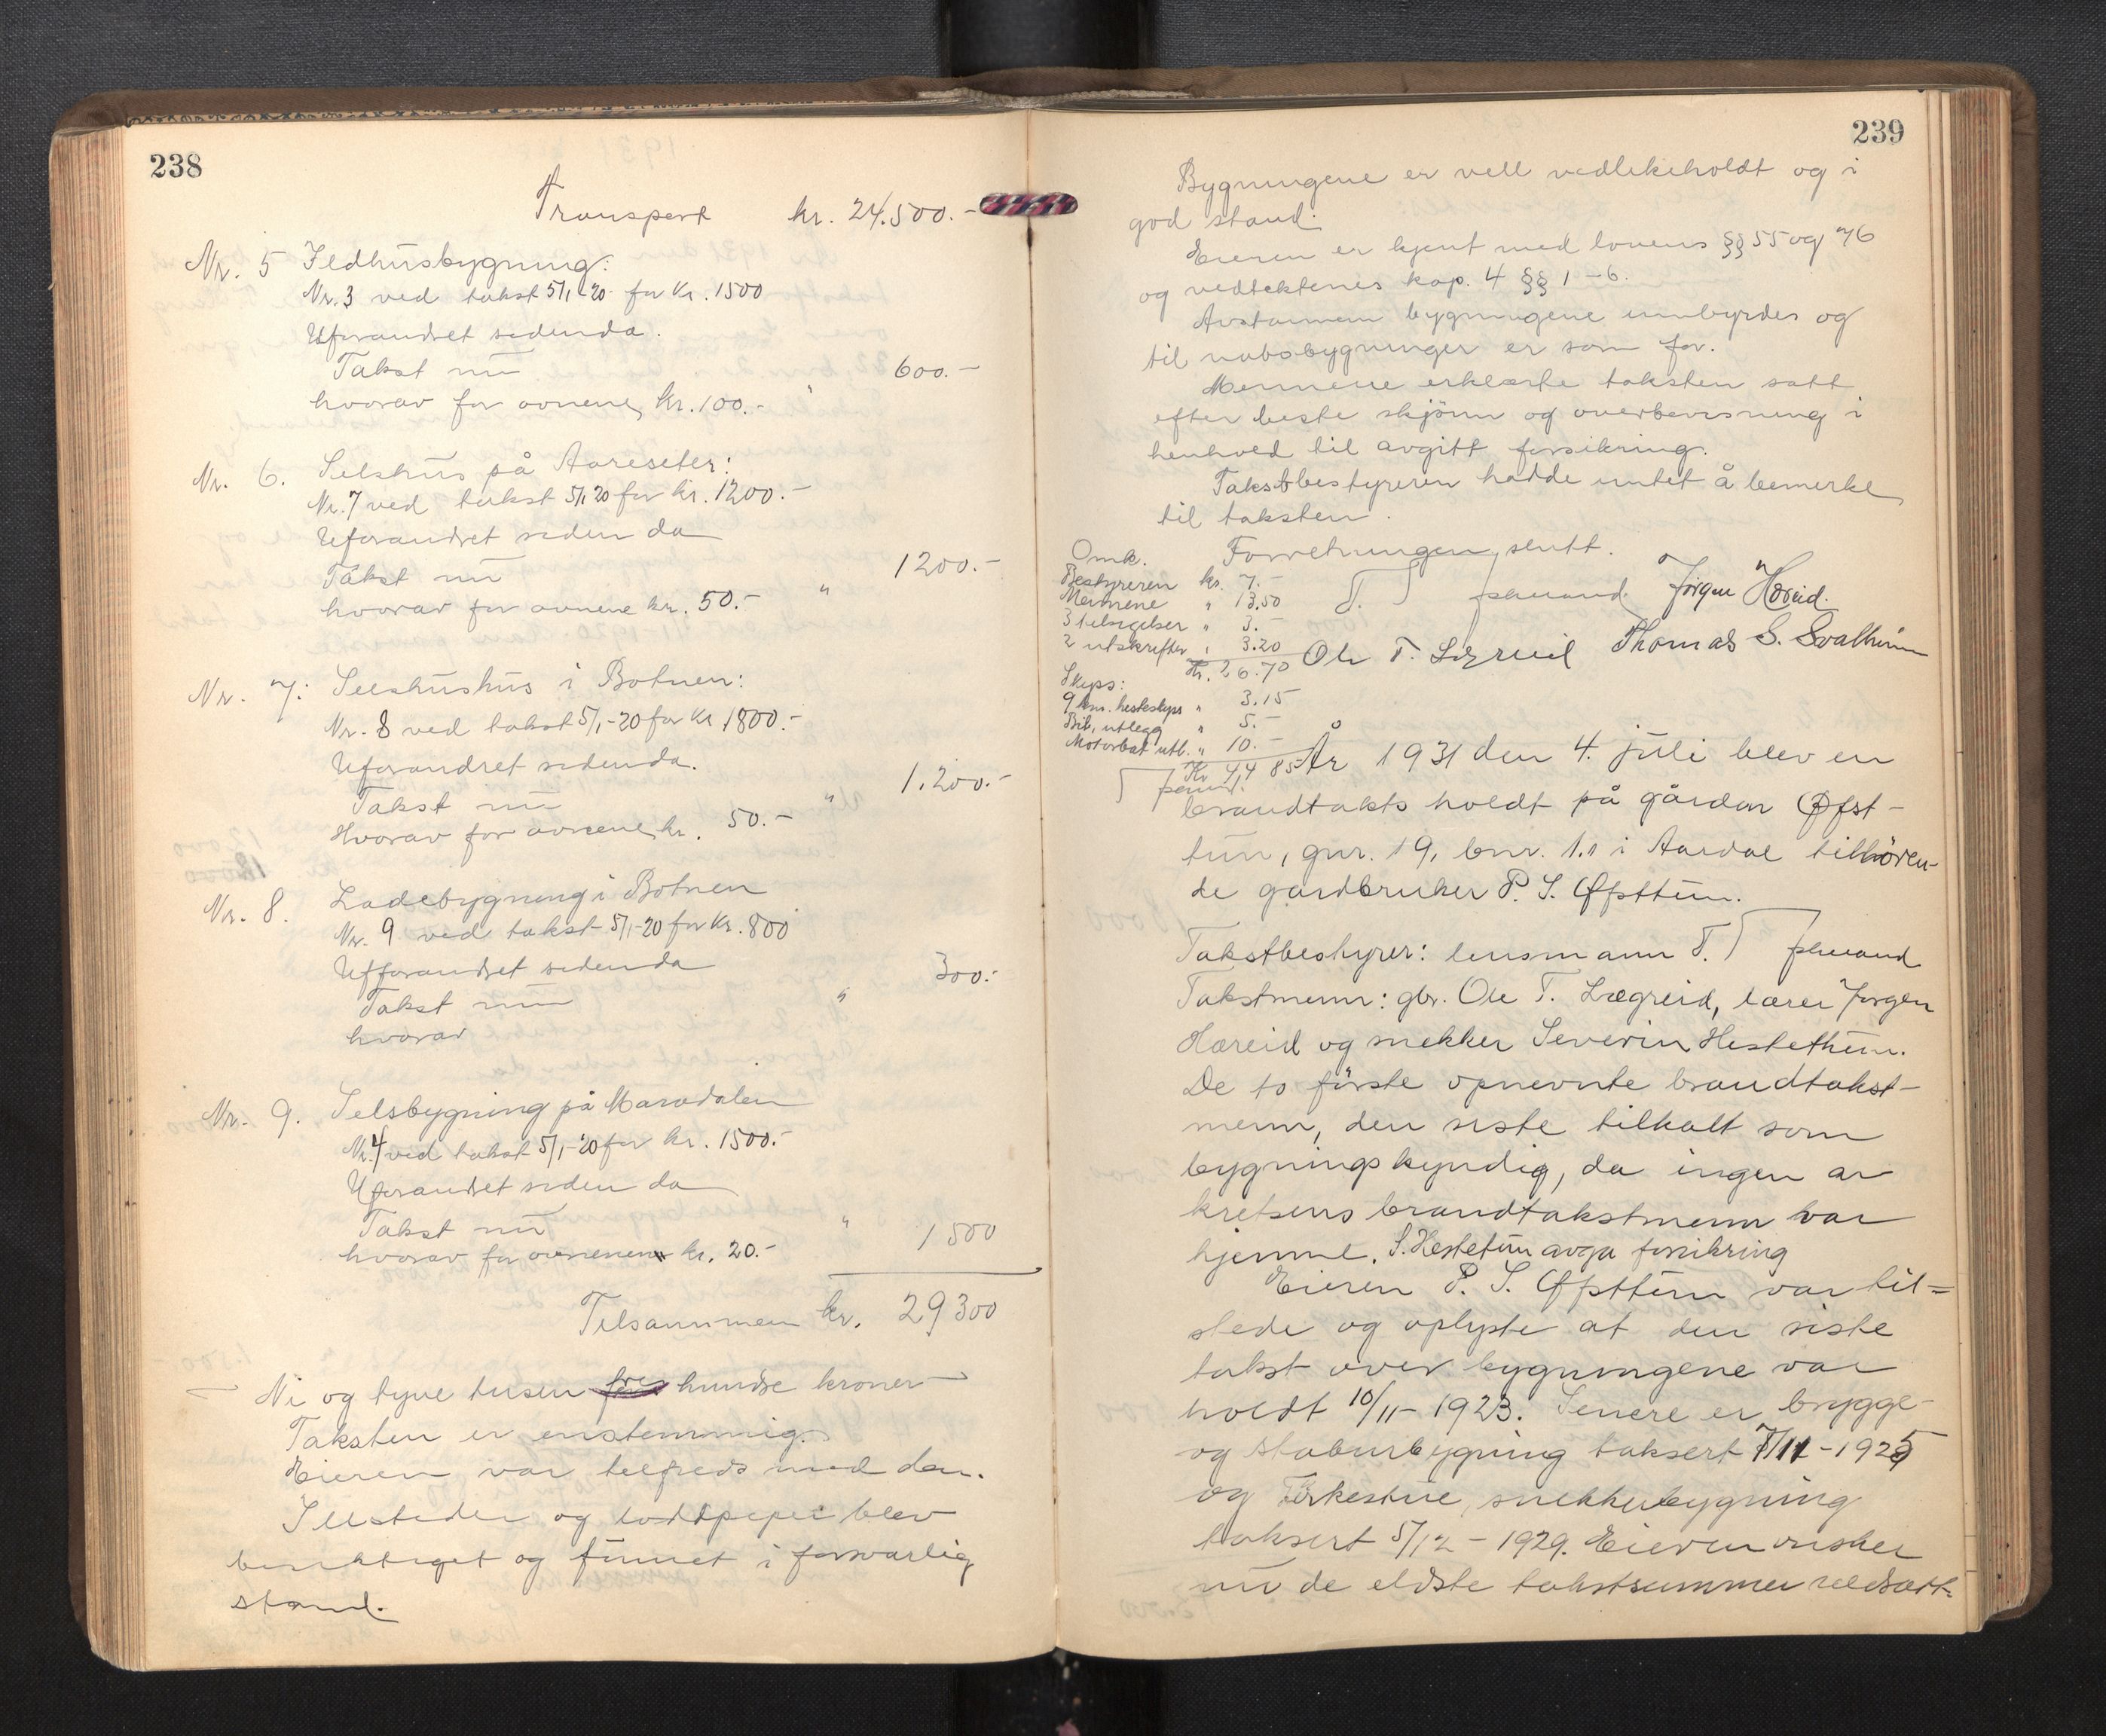 238
Transport kr. 24.500.-
Nr. 5 Ildhusbygning:
Nr. 3 ved takst 5/1-20 for kr. 1500
Uforandret sidenda.
Takst nu " 600.-
hvorav for ovnene kr. 100.-
Nr. 6. Selshus på Aareseter:
Nr. 7 ved takst 5/1 20 for kr. 1200.-
Uforandret siden da
Takst nu " 1200.-
hvorav for ovnene kr. 50.-
Nr. 7. Selshushus i Botnen:
Nr. 8 ved takst 5/1-20 for kr. 1800.-
Uforandret sidenda.
Takst nu " 1.200.-
Hvorav for ovnene kr. 50.-
Nr. 8. Ladebygning i Botnen
Nr. 9 ved takst 5/1-20 for kr. 800
Ufforandret sidenda
Takst nu " 300.-
hvorav
Nr. 9. Selsbygning på Maradalen
Nr. 4 ved takst 5/1-20 for kr. 1500.-
Uforandret siden da
Takst nu " 1500
hvorav for ovnene kr. 20.-
Tilsammen kr. 29300
- Ni og tyve tusen tre hundre kroner -
Taksten er enstemmig.
Eieren var tilfreds med den.
Ildsteder og brandpiper blev
besiktiget og funnet i forsvarlig
stand.
239
Bygningene er vell vedlikeholdt og i
god stand.
Eieren er kjent med lovens §§ 55 og 76
og vedtektenes kap. 4 §§ 1-6.
Avstannen bygningene innbyrdes og
til nabobygninger er som før.
Mennene erklærte taksten satt
efter beste skjönn og overbevisning i
henhold til avgitt forsikring.
Takstbestyreren hadde intet å bemerke
til taksten.
Forretningen slutt.
Jørgen Hæreid.
Ole T. Lægreid Thomas S. Svalheim
Omk.
Bestyreren kr. 7.-
Mennene " 13.50
3 tilsigelser " 3.-
2 utskrifter " 3.20
Kr. 26.70
Skyss:
9 km. hesteskyss " 3.15
Bil, utlegg " 5.-
Motorbåt utl. " 10.-
Kr. 44 85
År 1931 den 4. juli blev en
brandtakts holdt på gården Øfst-
tun, gnr. 19, bnr. 1. i Aardal tilhören-
de gardbruker P. S. Øfsttun.
Takstbestyrer: lensmann T.
Takstmenn: gbr. Ole T. Lægreid, lærer Jørgen
Hæreid og snekker Severin Hestethun.
De to förste opnevnte brandtakst-
menn, den siste tilkalt som
bygningskyndig, da ingen av
kretsens brandtakstmenn var
hjemme. S. Hestetun avga forsikring
Eieren P. S. Øfsttun var til=
stede og oplyste at den siste
takst over bygningene var
holdt 10/11-1923. Senere er brygge-
og stabursbygning taksert 7/11-1925
og Förkestue, snekkerbygning
taksert 5/12-1929. Eieren ønsker
nu de eldste takstsummer nedsatt.